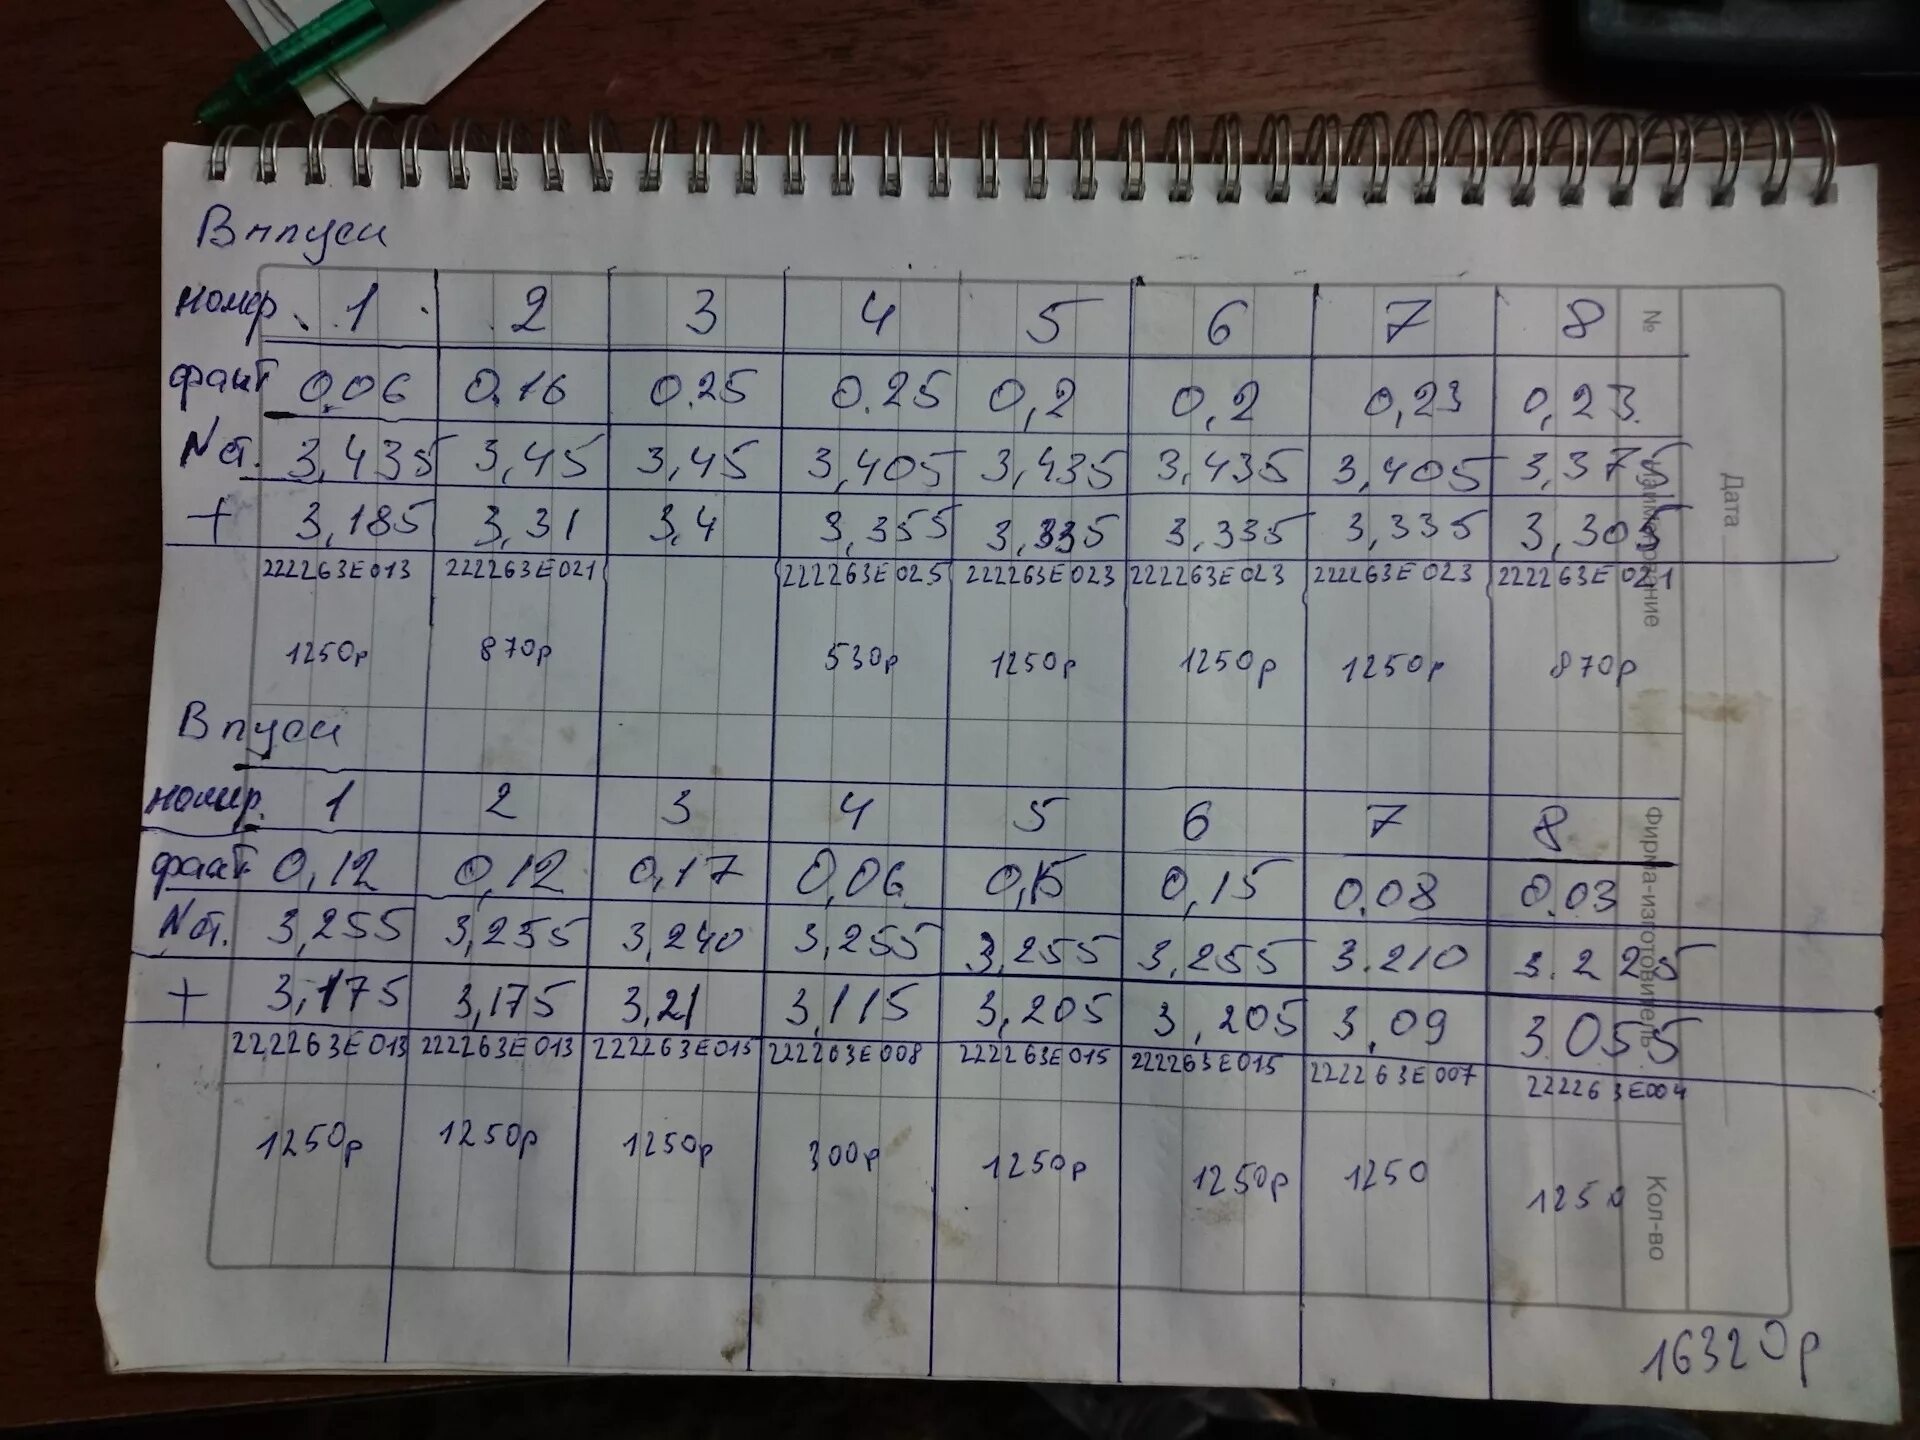 Выпуск
номер 1 2 3 4 5 6 7 8
факт 0.06 0.16 0.25 0.25 0,2 0,2 0,23 0,23
N ст. 3,435 3,45 3,45 3,405 3,435 3,435 3,405 3,375
+ 3,185 3,31 3,4 3,355 3,335 3.335 3,335 3,305
222263E013 222263E021 222263E025 222263E023 222263E023 222263E023 222263E021
1250р 870р 530р 1250р 1250р 1250р 870р
Впуск
номер. 1 2 3 4 5 6 7 8
факт 0,12 0,12 0,17 0,06 0,15 0,15 0.08 0.03
N ст. 3,255 3,255 3,240 3,255 3,255 3,255 3.210 3.225
+ 3,175 3,175 3,21 3,115 3,205 3,205 3,09 3.055
222263E013 222263E013 222263E015 222263E008 222263E015 222263E015 222263E007 222263E004
1250р 1250р 1250р 300р 1250р 1250р 1250 1250
16320р
№
Наименование
Фирма-изготовитель
Кол-во
Дата